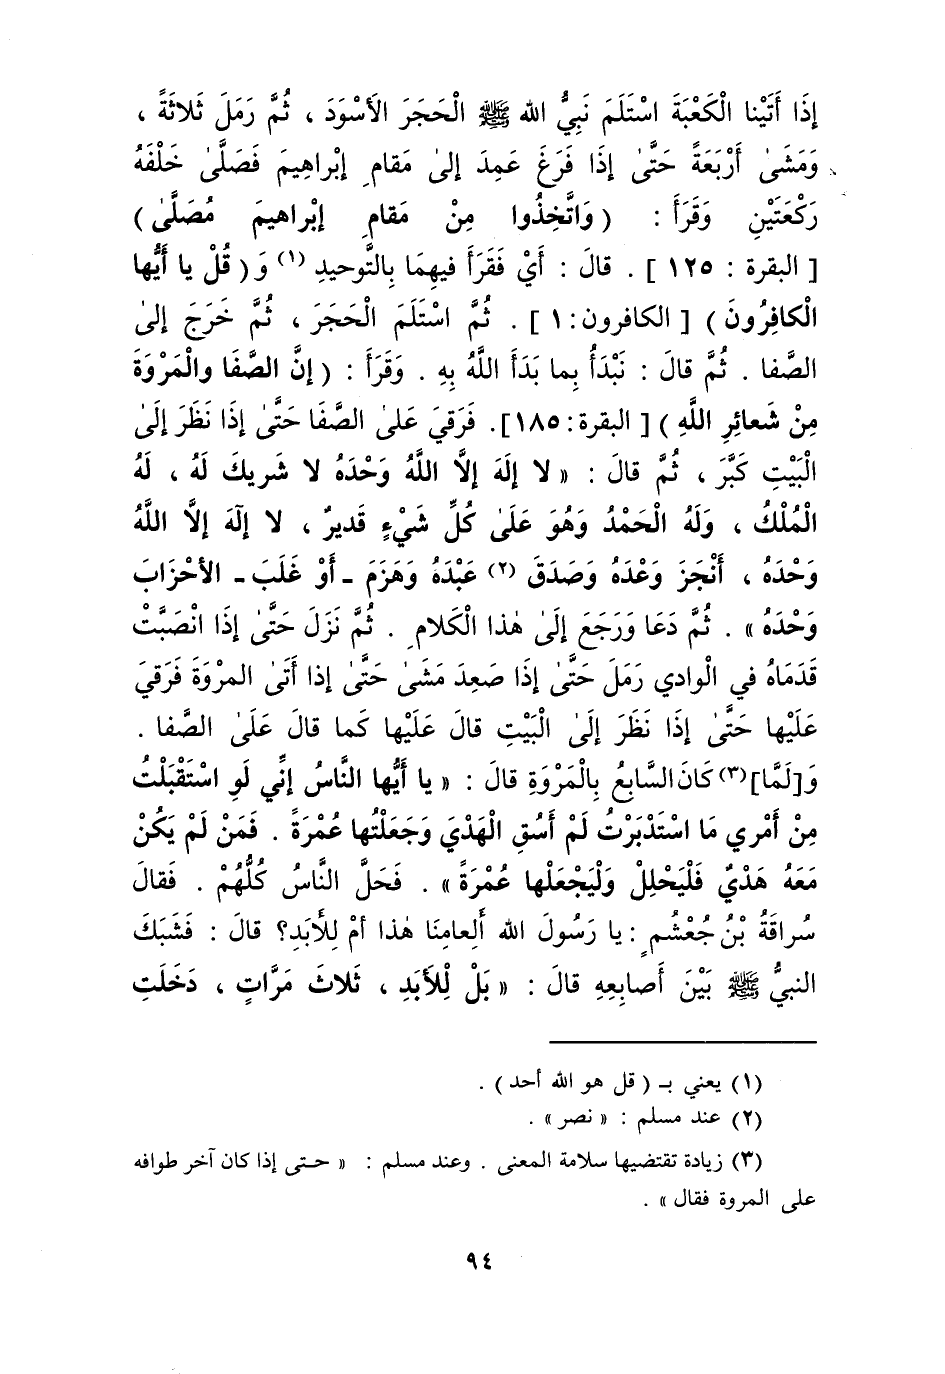 إِذَا أَتَيْنا الْكَعْبَةَ اسْتَلَمَ نَبِيُّ الله ﷺ الْحَجَرَ الأَسْوَدَ ، ثُمَّ رَمَلَ ثَلاثَةً ،
وَمَشَىٰ أَرْبَعَةً حَتَّىٰ إِذَا فَرَغَ عَمِدَ إِلىٰ مَقامِ إِبْراهِيمَ فَصَلَّىٰ خَلْفَهُ
رَكْعَتَيْنِ وَقَرَأَ : ( وَاتَّخِذُوا مِنْ مَقامِ إِبْراهيمَ مُصَلَّىٰ )
[ البقرة : ١٢٥ ] . قالَ : أَيْ فَقَرَأَ فيهِمَا بِالتَّوحيدِ (١) وَ ( قُلْ يا أَيُّها
الْكافِرُونَ ) [ الكافرون : ١ ] . ثُمَّ اسْتَلَمَ الْحَجَرَ ، ثُمَّ خَرَجَ إِلىٰ
الصَّفا . ثُمَّ قالَ : نَبْدَأُ بِما بَدَأَ اللَّهُ بِهِ . وَقَرَأَ : ( إِنَّ الصَّفَا والْمَرْوَةَ
مِنْ شَعائِرِ اللَّهِ ) [ البقرة : ١٨٥ ]. فَرَقيَ عَلىٰ الصَّفَا حَتَّىٰ إِذَا نَظَرَ إِلىٰ
الْبَيْتِ كَبَّرَ ، ثُمَّ قالَ : « لا إِلَهَ إِلَّا اللَّهُ وَحْدَهُ لا شَريكَ لَهُ ، لَهُ
الْمُلْكُ ، وَلَهُ الْحَمْدُ وَهُوَ عَلَىٰ كُلِّ شَيْءٍ قَديرٌ ، لا إِلَهَ إِلَّا اللَّهُ
وَحْدَهُ ، أَنْجَزَ وَعْدَهُ وَصَدَقَ (٢) عَبْدَهُ وَهَزَمَ ـ أَوْ غَلَبَ ـ الأحْزابَ
وَحْدَهُ » . ثُمَّ دَعَا وَرَجَعَ إِلَىٰ هٰذا الْكَلامِ . ثُمَّ نَزَلَ حَتَّىٰ إِذَا انْصَبَّتْ
قَدَمَاهُ في الْوادي رَمَلَ حَتَّىٰ إِذَا صَعِدَ مَشَىٰ حَتَّىٰ إِذا أَتَىٰ المرْوَةَ فَرَقيَ
عَلَيْها حَتَّىٰ إِذَا نَظَرَ إِلَىٰ الْبَيْتِ قالَ عَلَيْها كَما قالَ عَلَىٰ الصَّفا .
وَ[لَمَّا](٣) كَانَ السَّابعُ بِالْمَرْوَةِ قالَ : « يا أَيُّها النَّاسُ إِنِّي لَوِ اسْتَقْبَلْتُ
مِنْ أَمْري مَا اسْتَدْبَرْتُ لَمْ أَسُقِ الْهَدْيَ وَجَعَلْتُها عُمْرَةً . فَمَنْ لَمْ يَكُنْ
مَعَهُ هَدْيٌ فَلْيَحْلِلْ وَلْيَجْعَلْها عُمْرَةً » . فَحَلَّ النَّاسُ كُلُّهُمْ . فَقالَ
سُراقَةُ بْنُ جُعْشُمٍ : يا رَسُولَ الله أَلِعامِنَا هٰذا أَمْ لِلأَبَدِ؟ قالَ : فَشَبَكَ
النبيُّ ﷺ بَيْنَ أَصابِعِهِ قالَ : « بَلْ لِلْأَبَدِ ، ثَلاثَ مَرَّاتٍ ، دَخَلَتِ
(١) يعني بـ ( قل هو الله أحد ) .
(٢) عند مسلم : « نصر » .
(٣) زيادة تقتضيها سلامة المعنى . وعند مسلم : « حتى إذا كان آخر طوافه
على المروة فقال » .
٩٤